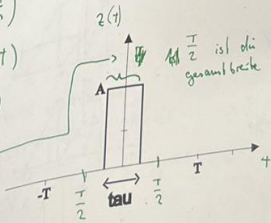 z(t)
T/2 ist die
gesamtbreite
A
-T
T/2
tau
T/2
T
t